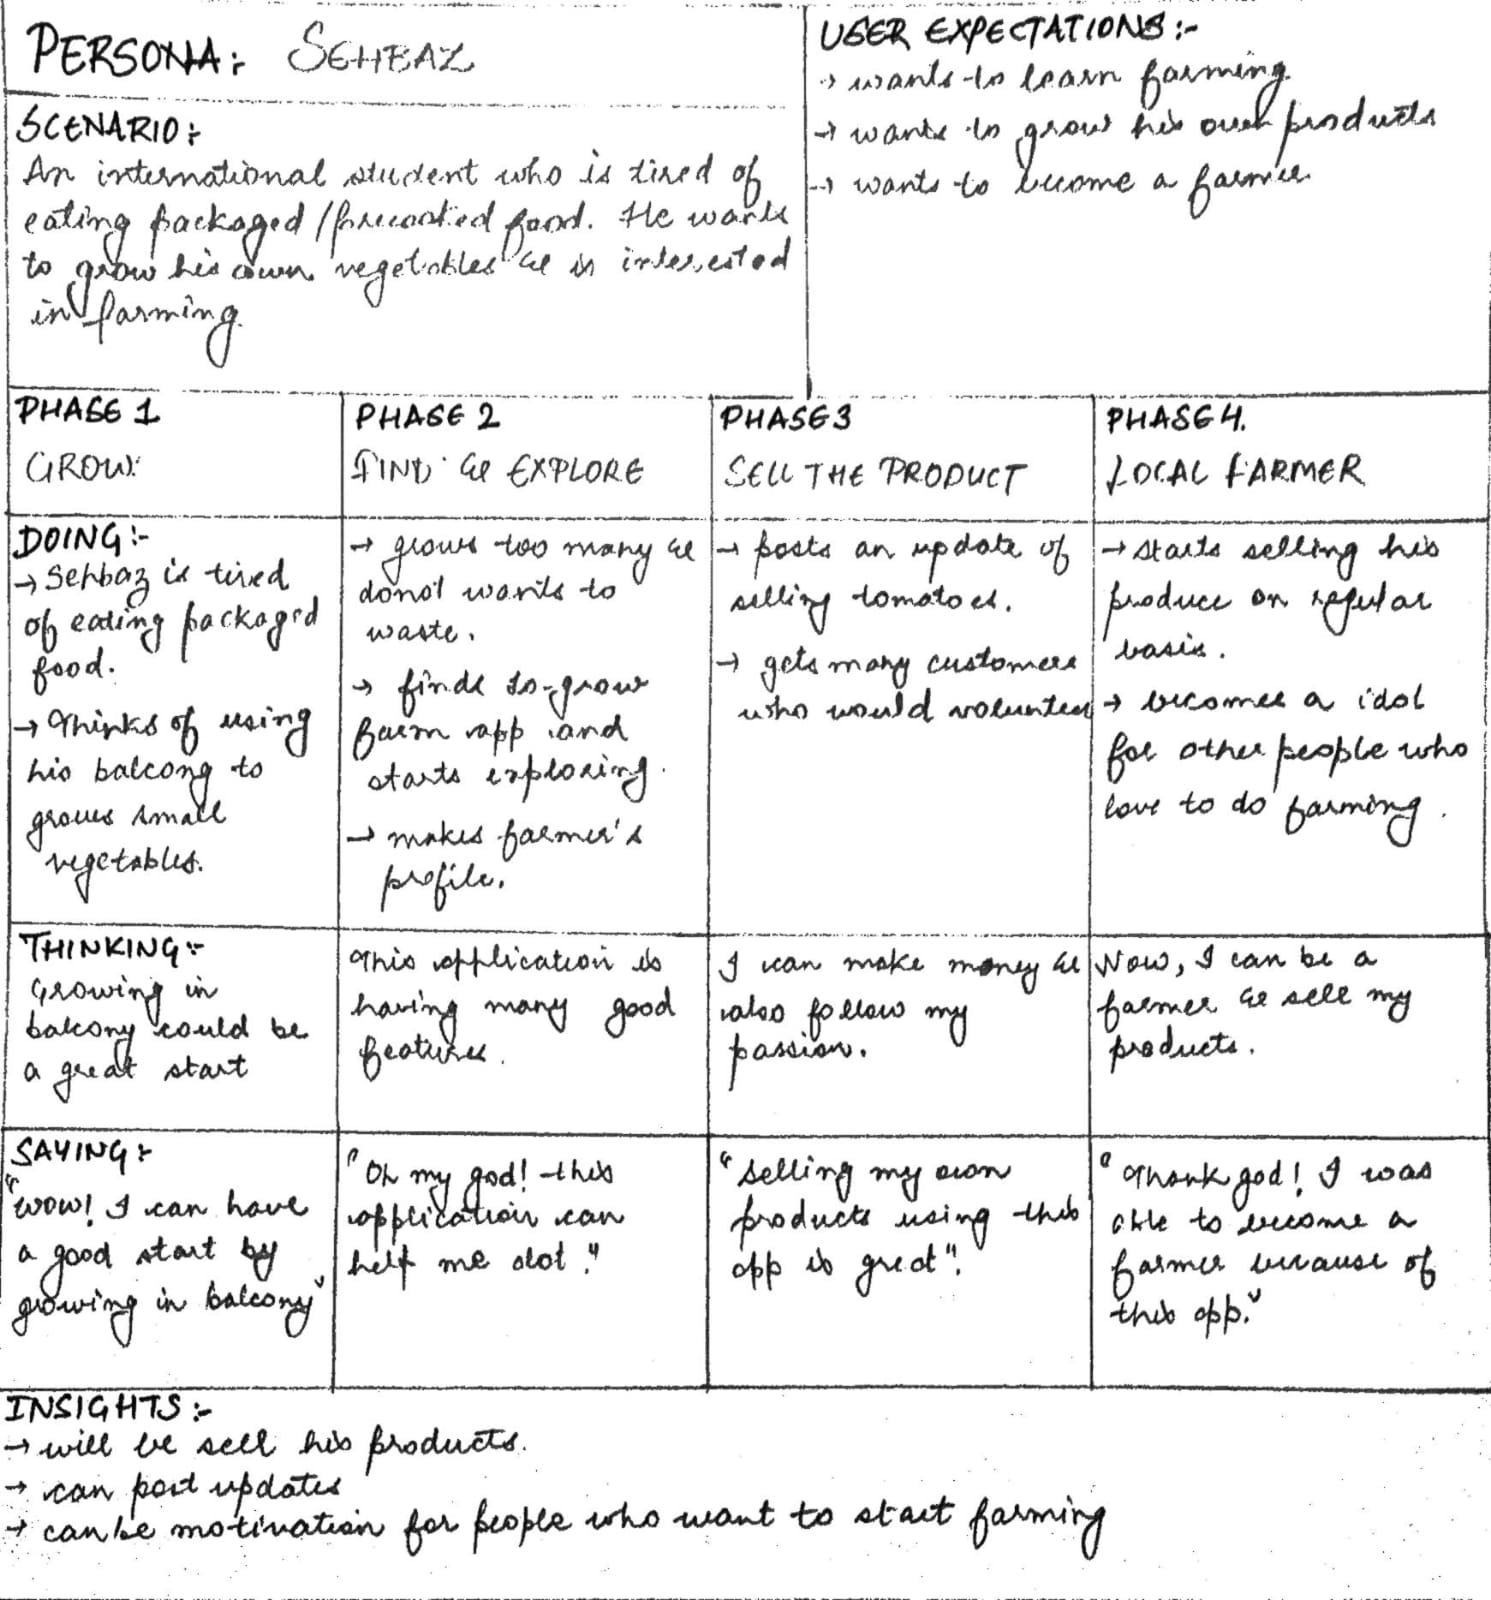 PERSONA: SEHBAZ
SCENARIO:
An international student who is tired of
eating packaged/precooked food. He wants
to grow his own vegetables & is interested
in farming.
USER EXPECTATIONS:-
→ wants to learn farming
→ wants to grow his own products
→ wants to become a farmer
PHASE 1
GROW
PHASE 2
FIND & EXPLORE
PHASE 3
SELL THE PRODUCT
PHASE 4.
LOCAL FARMER
DOING:-
→ Sehbaz is tired
of eating packaged
food.
→ Thinks of using
his balcong to
grows small
vegetables.
→ grows too many &
donot wants to
waste.
→ finds so-grow
farm app and
starts exploring.
→ makes farmer's
profile.
→ posts an update of
selling tomatoes.
→ gets many customers
who would volunteer
→ starts selling his
produce on regular
basis.
→ becomes a idol
for other people who
love to do farming.
THINKING:-
Growing in
balcony could be
a great start
This application is
having many good
features.
I can make money &
also follow my
passion.
Now, I can be a
farmer & sell my
products.
SAYING:-
"Wow! I can have
a good start by
growing in balcony"
"Oh my god! this
application can
help me alot."
"Selling my own
products using this
app is great".
"Thank god! I was
able to become a
farmer because of
this app."
INSIGHTS:-
→ will be sell his products.
→ can post updates
→ can be motivation for people who want to start farming